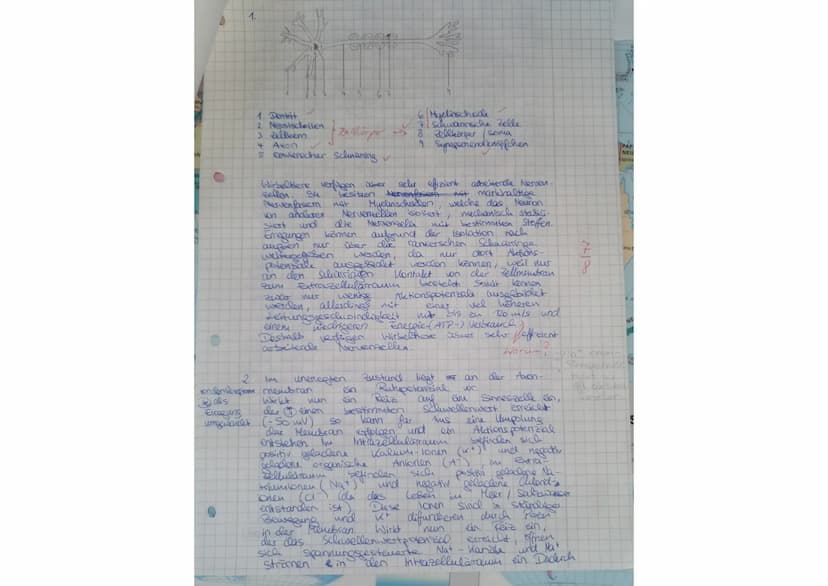 1.
1 Dentrit
2 Nisslschollen
3 Zellkern
4 Axon
5 Ranvierscher Schnürring
Zellkörper
6 Myelinscheide
7 Schwannsche Zelle
8 Zellkörper / Soma
9 Synapsenendknöpfchen
Wirbeltiere verfügen über sehr effizient arbeitende Nerven-
zellen. Sie besitzen markhaltige
Nervenfasern mit Myelinscheiden, welche das Neuron
von anderen Nervenzellen isoliert, mechanisch stabili-
siert und die Nervenzelle mit bestimmten Stoffen
Erregungen können aufgrund der Isolation nach
außen nur über die ranvierschen Schnürringe
weitergegeben werden, da nur dort Aktions-
potenziale ausgebildet werden können, weil nur
an den Schnürringen Kontakt von der Zellmembran
zum Extrazellulärraum besteht. Somit können
zwar nur wenige Aktionspotenziale ausgebildet
werden, allerdings mit einer viel höheren
Leitungsgeschwindigkeit mit bis zu 120 m/s und
einem niedrigeren Energie (ATP-) Verbrauch.
Deshalb verfügen Wirbeltiere über sehr effizient
arbeitende Nervenzellen.
Warum?
7
8
2. Im unerregten Zustand liegt an der Axon-
membran ein Ruhepotenzial vor.
Wirkt nun ein Reiz auf die Sinneszelle ein,
der einen bestimmten Schwellenwert erreicht
(-50 mV) so kann für 1ms eine Umpolung
der Membran erfolgen und ein Aktionspotenzial
entstehen. Im Intrazellulärraum befinden sich
positiv geladene Kalium-Ionen (K⁺) und negativ
geladene organische Anionen (A⁻). Im Extra-
zellulärraum befinden sich positiv geladene Na-
triumionen (Na⁺) und negativ geladene Chlorid-
ionen (Cl⁻) (da das Leben im Meer / Salzwasser
entstanden ist). Diese Ionen sind in ständiger
Bewegung und K⁺ diffundieren durch Poren
in der Membran. Wirkt nun ein Reiz ein,
der das Schwellenwertpotenzial erreicht, öffnen
sich spannungsgesteuerte Na⁺-Kanäle und Na⁺
strömen in den Intrazellulärraum ein. Dadurch
als
Erregung
umgewandelt